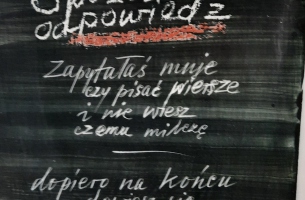 odpowiedź
zapytałaś mnie
czy pisać wiersze
i nie wiesz
czemu milczę
dopiero na końcu